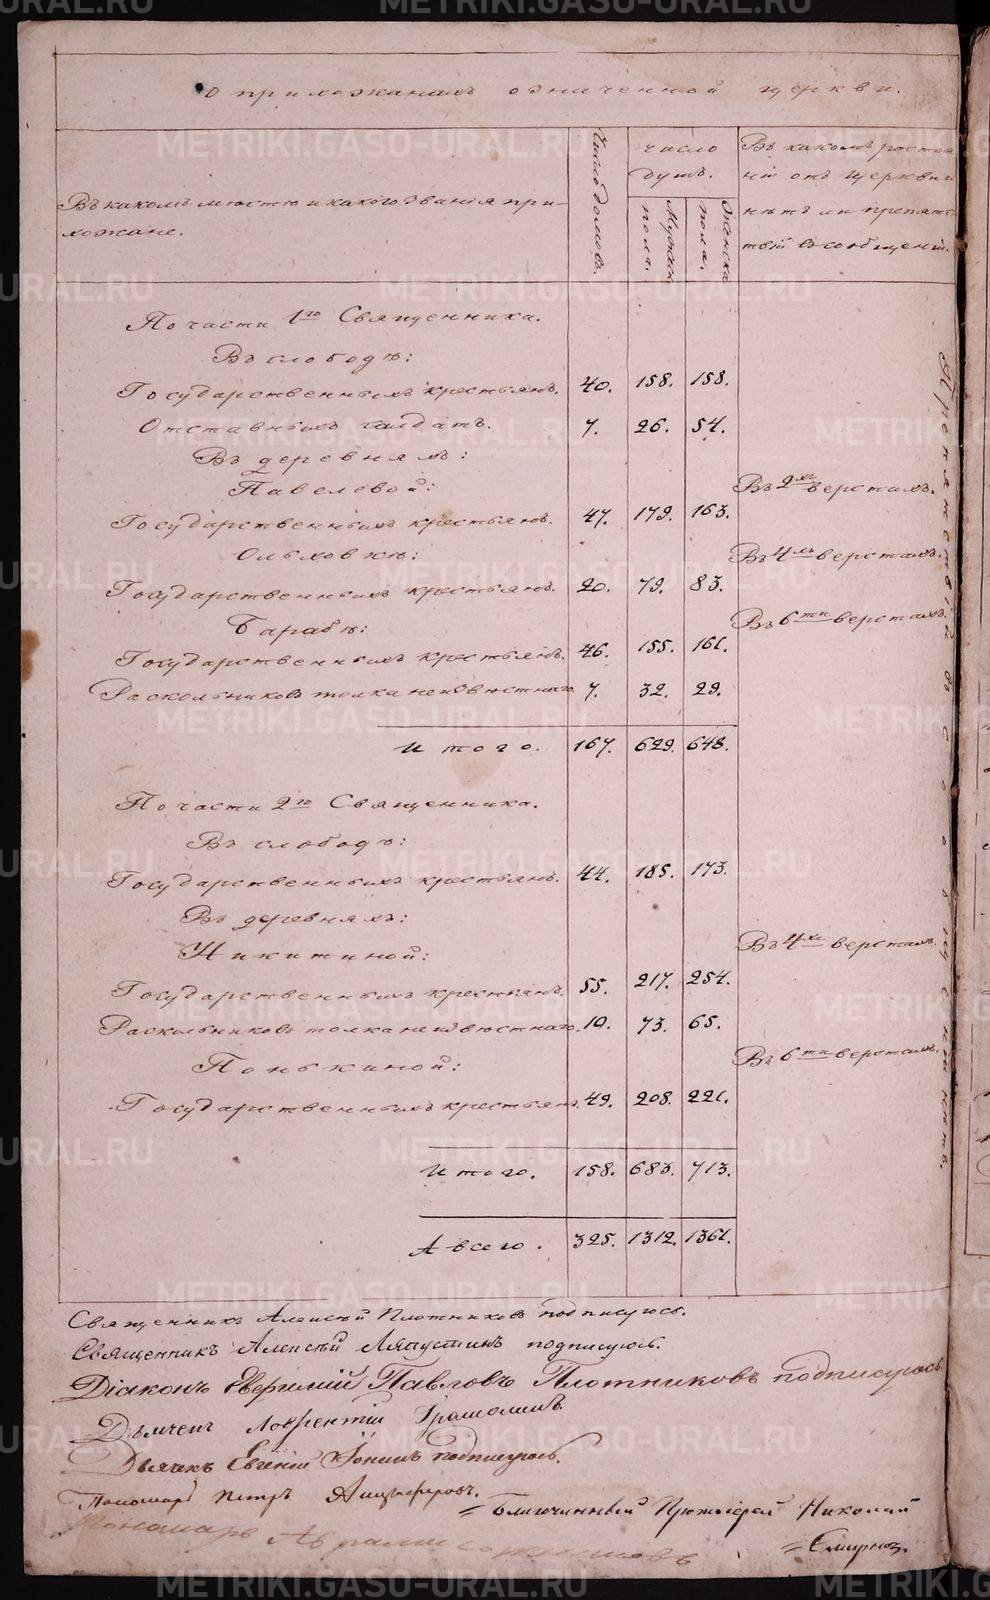 о прихожанахъ означенной церкви.
Въ какомъ мѣстѣ и какого званія при-
хожане.
Число домовъ.
число
душъ.
Мужеска
пола.
Женска
пола.
Въ какомъ ростоя
ніи отъ церкви и
нѣтъ ли препятс
твій въ сообщеніи.
По части 1го Священника.
Въ слободѣ:
Государственныхъ крестьянъ. 40. 158. 158.
Отставныхъ салдатъ. 7. 26. 54.
Въ деревняхъ:
Павелевой: Въ 2хъ верстахъ.
Государственныхъ крестьянъ. 47. 179. 163.
Ольховкѣ: Въ 4хъ верстахъ.
Государственныхъ крестьянъ. 20. 79. 83.
Барабѣ: Въ 6ти верстахъ.
Государственныхъ крестьянъ. 46. 155. 161.
Раскольниковъ толка неизвѣстнаго. 7. 32. 29.
Итого. 167. 629. 648.
По части 2го Священника.
Въ слободѣ:
Государственныхъ крестьянъ. 44. 185. 173.
Въ деревняхъ:
Никитиной: Въ 4хъ верстахъ.
Государственныхъ крестьянъ. 55. 217. 254.
Раскольниковъ толка неизвѣстнаго. 10. 73. 65.
Понькиной: Въ 6ти верстахъ.
Государственныхъ крестьянъ. 49. 208. 221.
Итого. 158. 683. 713.
А всего. 325. 1312. 1361.
Препятствія въ сообщеніи нѣтъ.
Священникъ Алексѣй Плотниковъ подписуюсь.
Священникъ Алексѣй Ляпустинъ подписуюсь.
Діаконъ Павловъ Плотниковъ подписуюсь
Лаврентій
Дьячекъ Евгеній подписуюсь.
Пономарь Петръ
Благочинный Протоіерей Николай
Смирновъ.
Пономарь
METRIKI.GASO-URAL.RU